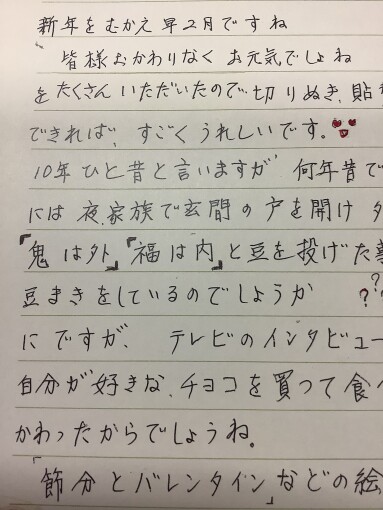 新年をむかえ早2月ですね
皆様おかわりなくお元気でしょね
をたくさんいただいたので、切りぬき、貼
できれば、すごくうれしいです。
10年ひと昔と言いますが 何年昔で
には夜、家族で玄関の戸を開け
「鬼は外」「福は内」と豆を投げた
豆まきをしているのでしょうか ???
にですが、テレビのインタビュー
自分が好きな、チョコを買って食べ
かわったからでしょうね。
「節分とバレンタイン」などの絵